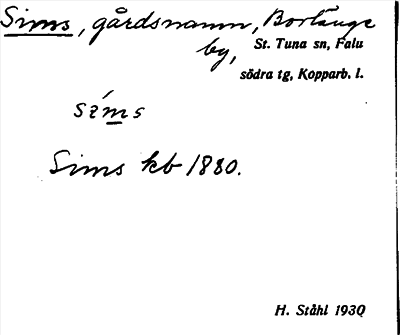 Sims, gårdsnamn, Borlänge
by, St. Tuna sn, Falu
södra tg, Kopparb. l.
síms
Sims kb 1880.
H. Ståhl 1930